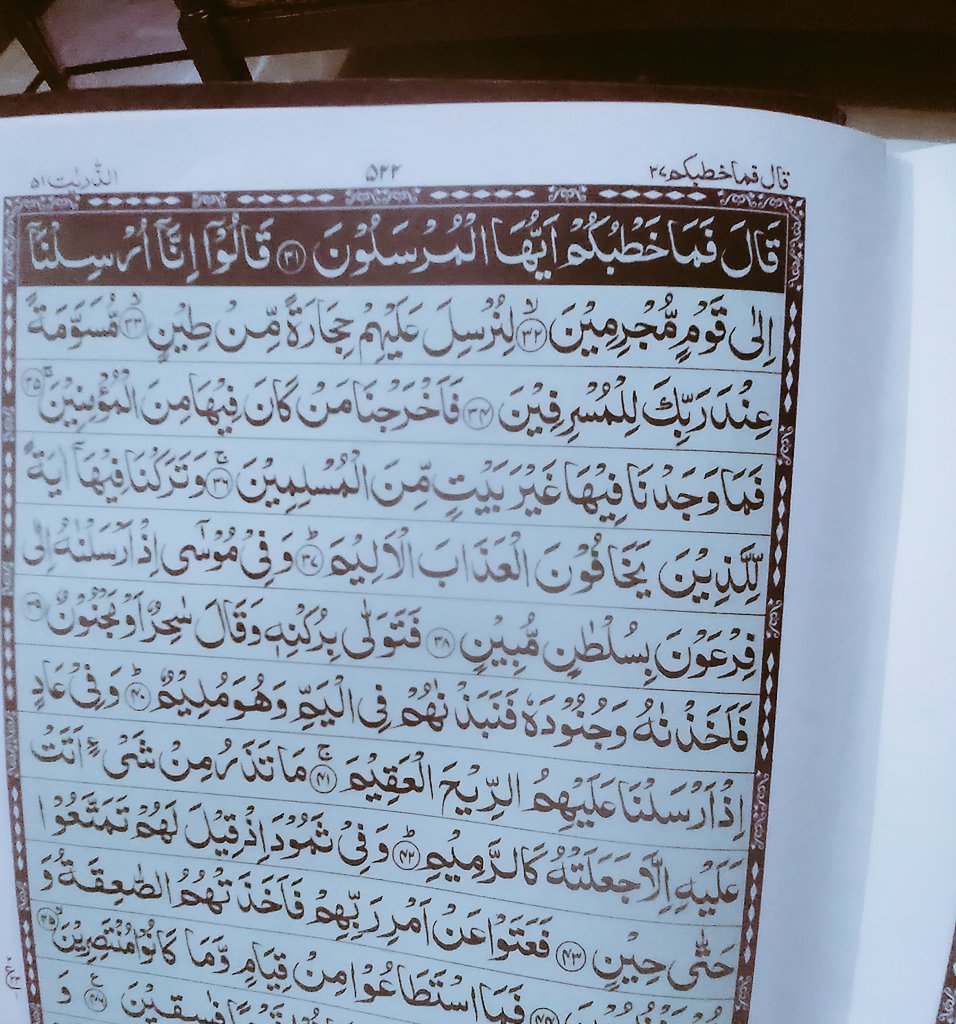 قال فما خطبکم ۲۷
۵۲۲
الذّٰریٰت ۵۱
قَالَ فَمَا خَطْبُكُمْ اَيُّهَا الْمُرْسَلُوْنَ ۝۳۱ قَالُوْۤا اِنَّاۤ اُرْسِلْنَاۤ
اِلٰى قَوْمٍ مُّجْرِمِيْنَ ۝۳۲ۙ لِنُرْسِلَ عَلَيْهِمْ حِجَارَةً مِّنْ طِيْنٍ ۝۳۳ۙ مُّسَوَّمَةً
عِنْدَ رَبِّكَ لِلْمُسْرِفِيْنَ ۝۳۴ فَاَخْرَجْنَا مَنْ كَانَ فِيْهَا مِنَ الْمُؤْمِنِيْنَ ۝۳۵ۚ
فَمَا وَجَدْنَا فِيْهَا غَيْرَ بَيْتٍ مِّنَ الْمُسْلِمِيْنَ ۝۳۶ۚ وَتَرَكْنَا فِيْهَاۤ اٰيَةً
لِّلَّذِيْنَ يَخَافُوْنَ الْعَذَابَ الْاَلِيْمَ ۝۳۷ؕ وَفِيْ مُوْسٰۤى اِذْ اَرْسَلْنٰهُ اِلٰى
فِرْعَوْنَ بِسُلْطٰنٍ مُّبِيْنٍ ۝۳۸ فَتَوَلّٰى بِرُكْنِهٖ وَقَالَ سٰحِرٌ اَوْ مَجْنُوْنٌ ۝۳۹
فَاَخَذْنٰهُ وَجُنُوْدَهٗ فَنَبَذْنٰهُمْ فِي الْيَمِّ وَهُوَ مُلِيْمٌ ۝۴۰ؕ وَفِيْ عَادٍ
اِذْ اَرْسَلْنَا عَلَيْهِمُ الرِّيْحَ الْعَقِيْمَ ۝۴۱ۚ مَا تَذَرُ مِنْ شَيْءٍ اَتَتْ
عَلَيْهِ اِلَّا جَعَلَتْهُ كَالرَّمِيْمِ ۝۴۲ؕ وَفِيْ ثَمُوْدَ اِذْ قِيْلَ لَهُمْ تَمَتَّعُوْا
حَتّٰى حِيْنٍ ۝۴۳ فَعَتَوْا عَنْ اَمْرِ رَبِّهِمْ فَاَخَذَتْهُمُ الصّٰعِقَةُ وَ
فَمَا اسْتَطَاعُوْا مِنْ قِيَامٍ وَّمَا كَانُوْا مُنْتَصِرِيْنَ ۝۴۵ۙ
فٰسِقِيْنَ ۝۴۶ وَ